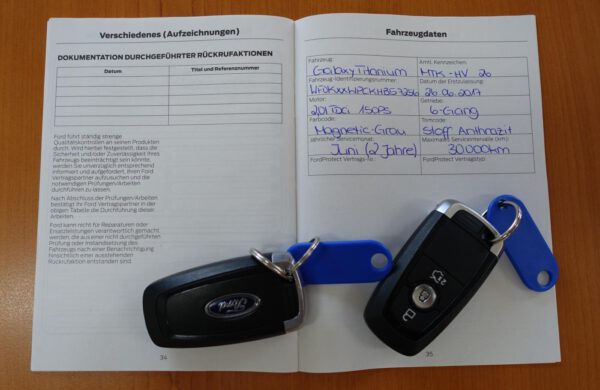 Verschiedenes (Aufzeichnungen)
DOKUMENTATION DURCHGEFÜHRTER RÜCKRUFAKTIONEN
Datum Titel und Referenznummer
Ford führt ständig strenge
Qualitätskontrollen an seinen Produkten
durch. Wird hierbei festgestellt, dass die
Sicherheit und/oder Zuverlässigkeit Ihres
Fahrzeugs beeinträchtigt sein könnte,
werden Sie unverzüglich entsprechend
informiert und aufgefordert, Ihren Ford
Vertragspartner aufzusuchen und die
notwendigen Prüfungen/Arbeiten
durchführen zu lassen.
Nach Abschluss der Prüfungen/Arbeiten
bestätigt Ihr Ford Vertragspartner in der
obigen Tabelle die Durchführung dieser
Arbeiten.
Ford kann nicht für Reparaturen oder
Ersatzleistungen verantwortlich gemacht
werden, die aus einer nicht durchgeführten
Prüfung oder Instandsetzung des
Fahrzeugs nach einer Benachrichtigung
hinsichtlich einer ausstehenden
Rückrufaktion entstanden sind.
34
Fahrzeugdaten
Fahrzeug: Amtl. Kennzeichen:
Galaxy Titanium MTK-HV 26
Fahrzeug-Identifizierungsnummer: Datum der Erstzulassung:
26.06.2017
Motor: Getriebe:
2,0l TDCi 150PS 6-Gang
Farbcode: Trimcode:
Magnetic-Grau Stoff Anthrazit
Jährlicher Servicemonat: Maximales Serviceintervall (km):
Juni (2 Jahre) 30 000km
FordProtect Vertrags-Nr.: FordProtect Vertragstyp:
35
Ford